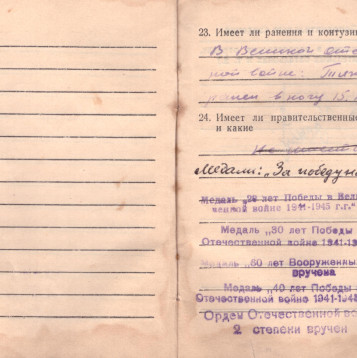 23. Имеет ли ранения и контузи
В Великой оте
ной войне. Тяж
ранен в ногу 15.
24. Имеет ли правительственные
и какие
Медали: „За победу н
Медаль „20 лет Победы в Вели
венной войне 1941-1945 г.г."
Медаль „30 лет Победы
Отечественной войне 1941-1
Медаль „60 лет Вооруженных
вручена
Медаль „40 лет Победы
Отечественной войне 1941-1945
Орден Отечественной во
2 степени вручен